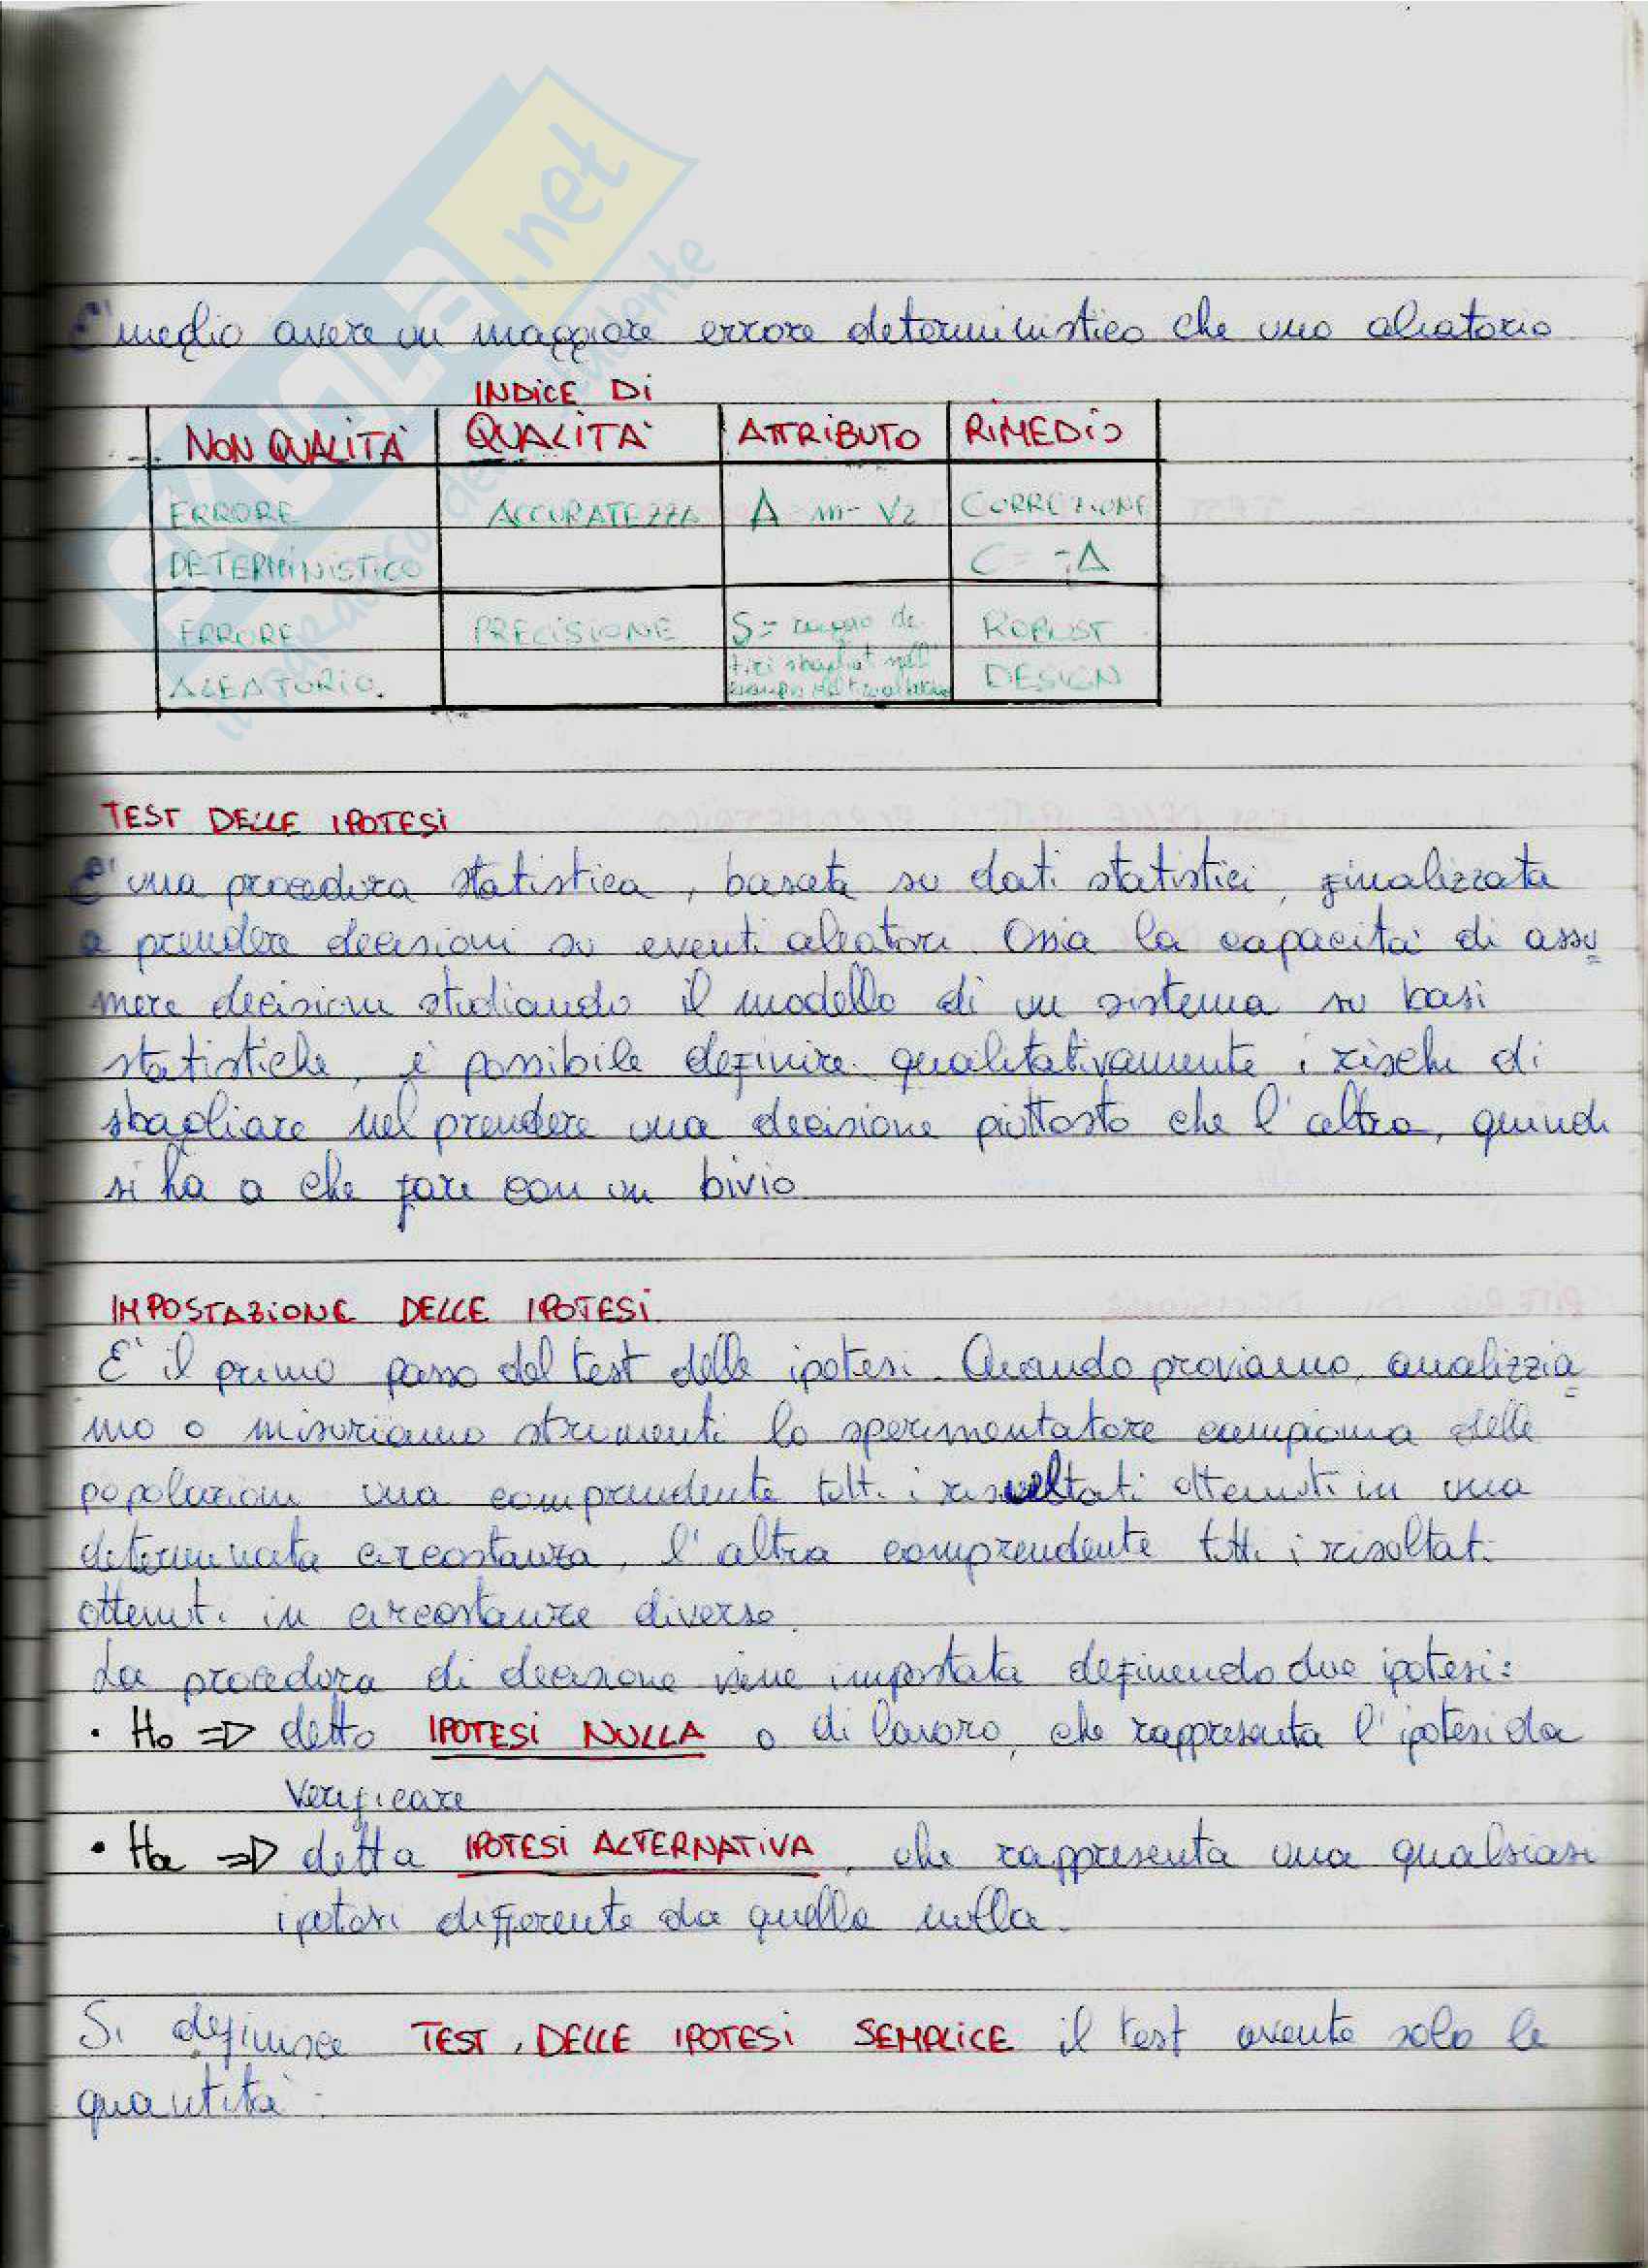 E' meglio avere un maggiore errore deterministico che uno aleatorio
NON QUALITA' INDICE DI QUALITA' ATTRIBUTO RIMEDIO
ERRORE DETERMINISTICO ACCURATEZZA Δ = m - V2 CORREZIONE C = -Δ
ERRORE ALEATORIO. PRECISIONE S = ROBUST DESIGN
TEST DELLE IPOTESI
E' una procedura statistica, basata su dati statistici, finalizzata
a prendere decisioni su eventi aleatori. Ossia la capacità di assu
mere decisioni studiando il modello di un sistema su basi
statistiche, è possibile definire qualitativamente i rischi di
sbagliare nel prendere una decisione piuttosto che l'altra, quindi
si ha a che fare con un bivio
IMPOSTAZIONE DELLE IPOTESI
E' il primo passo del test delle ipotesi. Quando proviamo, analizzia
mo o misuriamo strumenti lo sperimentatore campiona delle
popolazioni una comprendente tutti i risultati ottenuti in una
determinata circostanza, l'altra comprendente tutti i risultati
ottenuti in circostanze diverse.
La procedura di decisione viene impostata definendo due ipotesi:
• H0 => detto IPOTESI NULLA o di lavoro, che rappresenta l'ipotesi da
verificare
• Ha => detta IPOTESI ALTERNATIVA, che rappresenta una qualsiasi
ipotesi differente da quella nulla.
Si definisce TEST DELLE IPOTESI SEMPLICE il test avente solo le
quantità:
SKUOLA.net